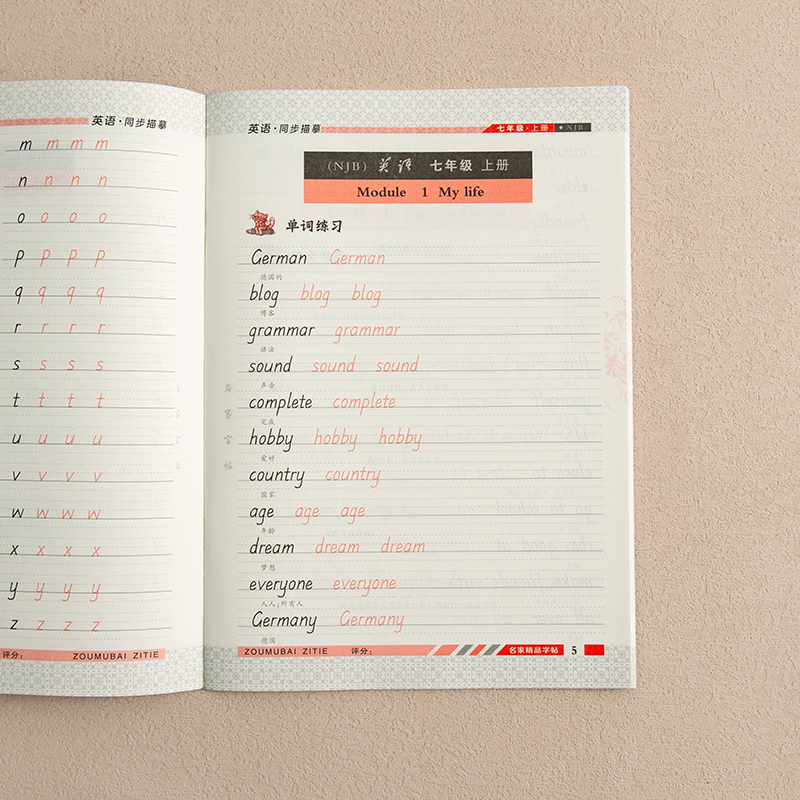 英语·同步描摹
m m m m
n n n n
o o o o
p p p p
q q q q
r r r r
s s s s
t t t t
u u u u
v v v v
w w w w
x x x x
y y y y
z z z z
评分：
ZOUMUBAI ZITIE
英语·同步描摹
七年级·上册 ◆NJB
(NJB) 英语 七年级 上册
Module 1 My life
单词练习
German German
德国的
blog blog blog
博客
grammar grammar
语法
sound sound sound
声音
complete complete
完成
hobby hobby hobby
爱好
country country
国家
age age age
年龄
dream dream dream
梦想
everyone everyone
人人；所有人
Germany Germany
德国
名家字帖
ZOUMUBAI ZITIE 评分：
名家精品字帖 5